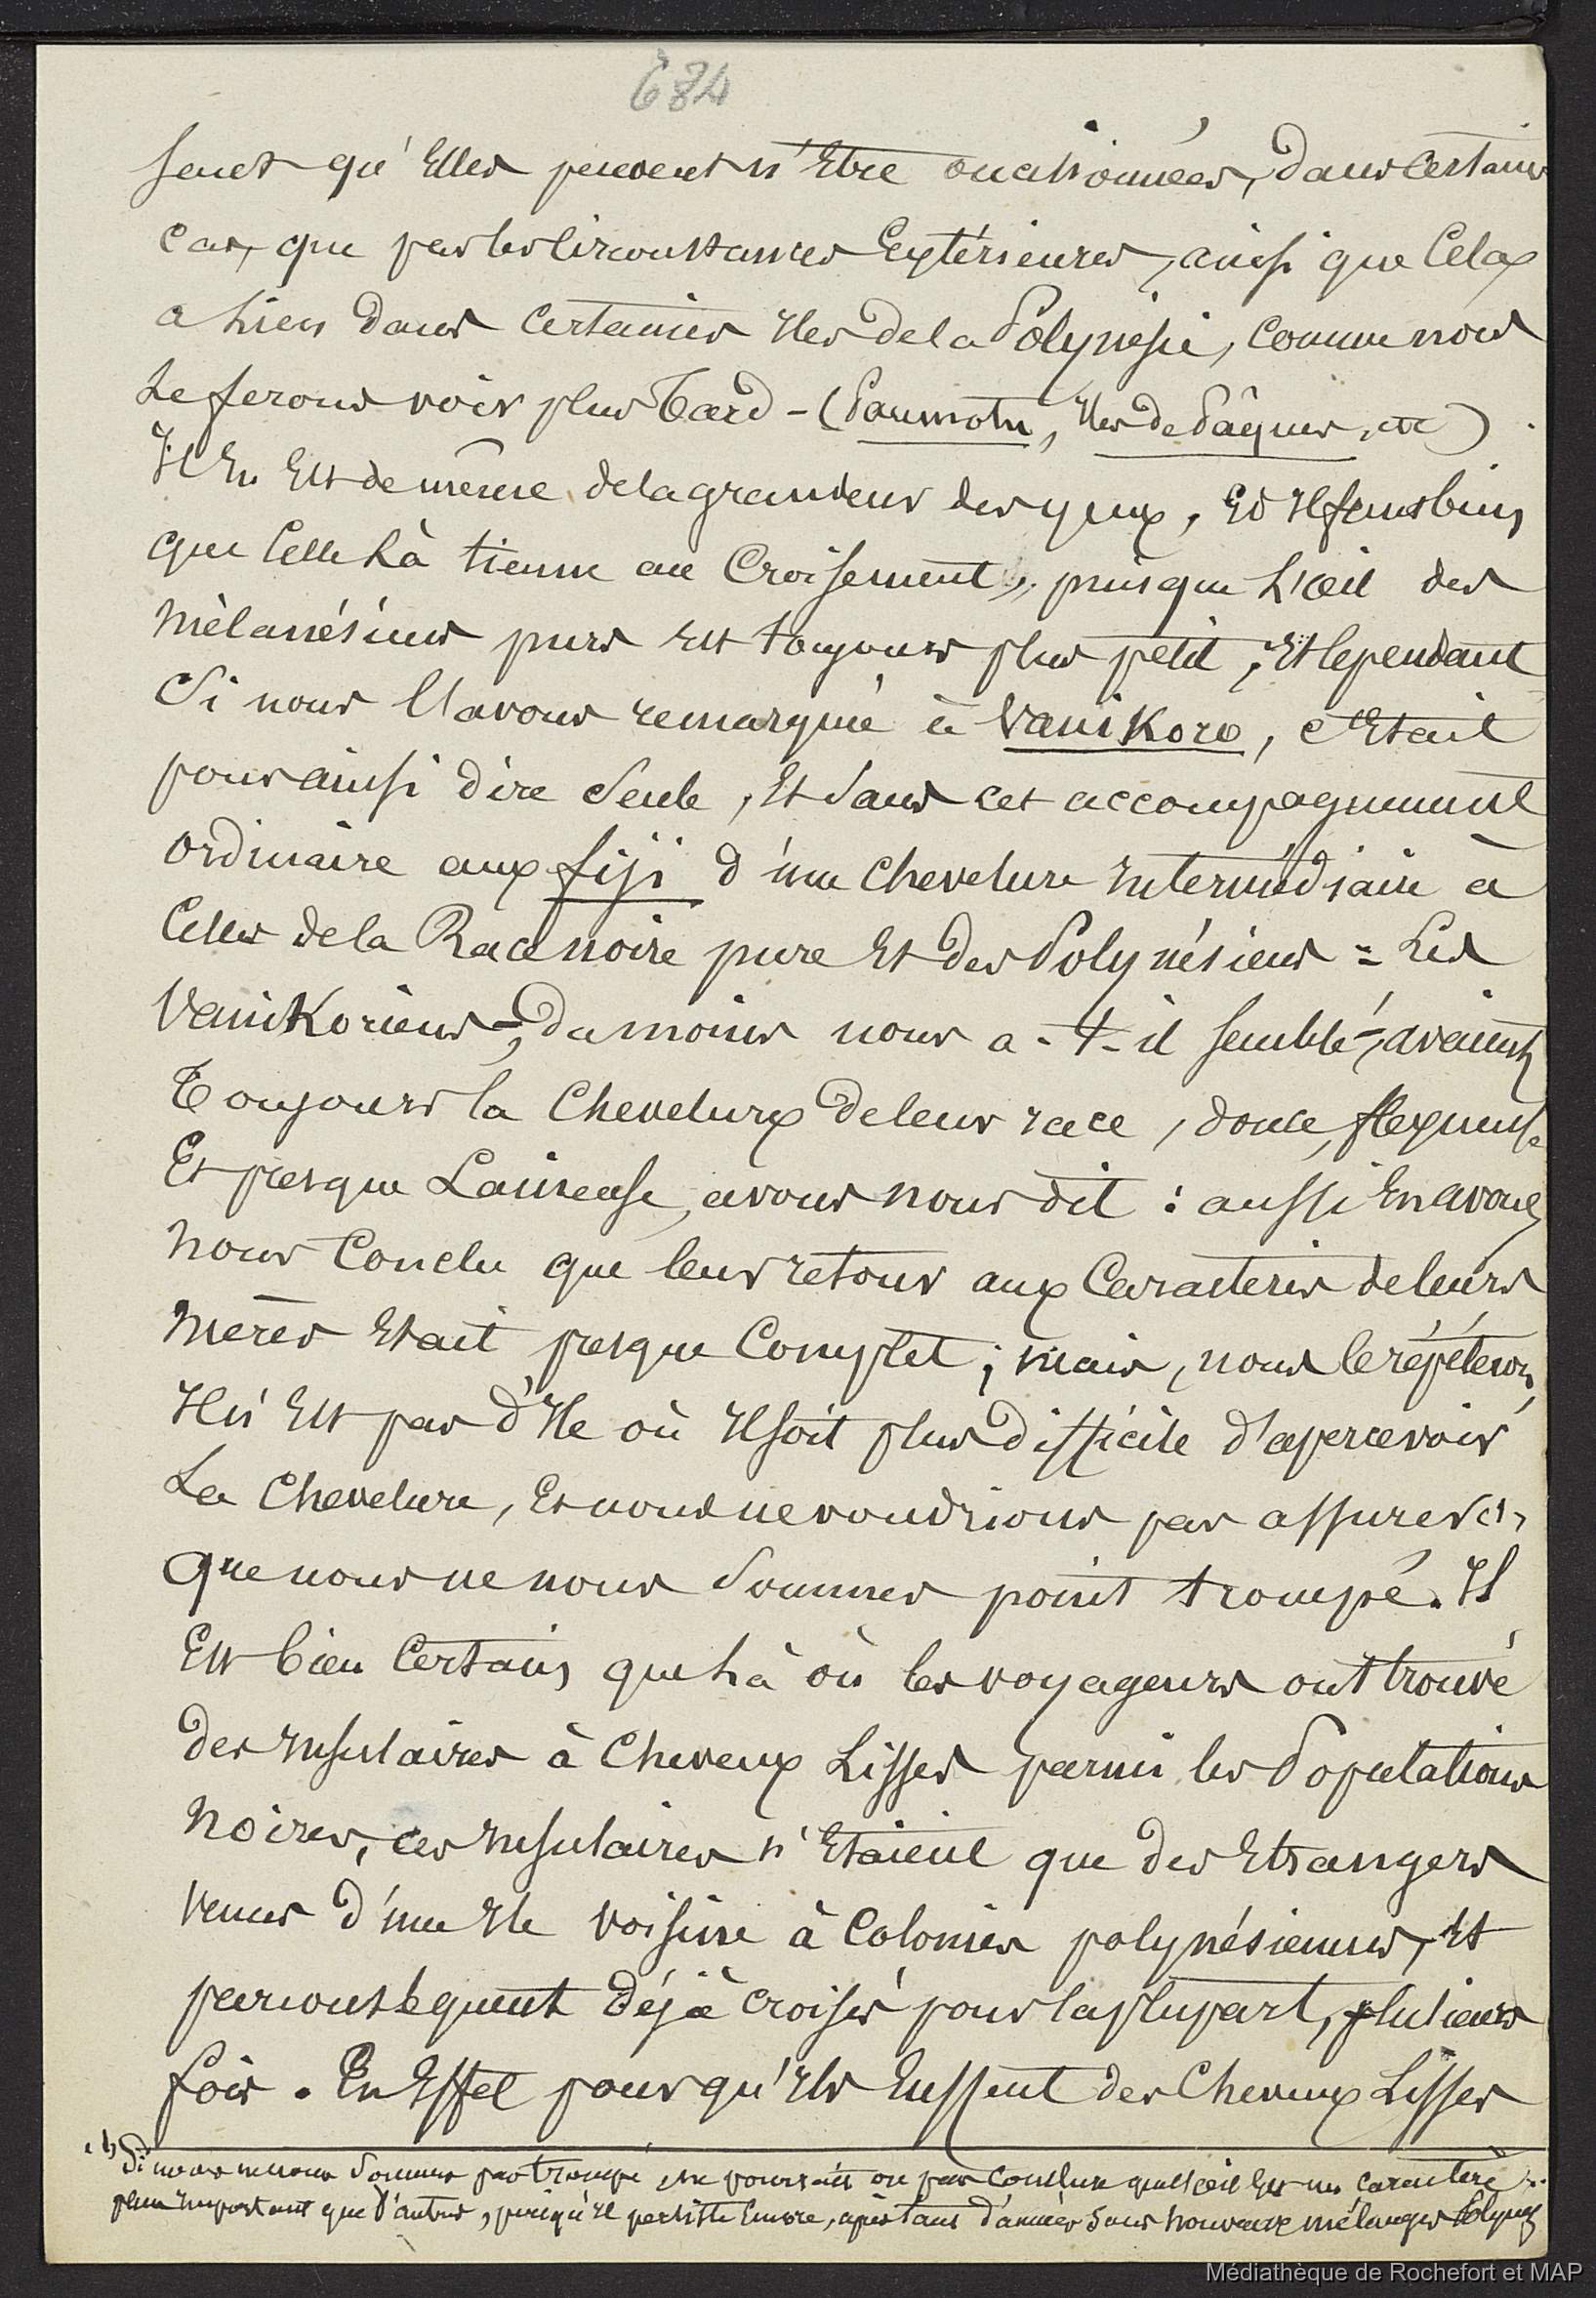 684
sent qu'Elles peuvent n'Etre occasionnées, dans certains
cas, que par les Circonstances Extérieures, ainsi que Cela
a lieu dans Certaines Iles de la Polynésie, Comme nous
le ferons voir plus Tard - (Paumotu, Iles de Pâques, etc).
Il En Est de même de la grandeur des yeux, Et Il faut bien
que Celle là tienne au Croisement, puisque l'œil des
Mélanésiens purs Est toujours plus petit; Et Cependant
Si nous l'avons remarqué à Vanikoro, c'Etait
pour ainsi dire Seule, Et Sans cet accompagnement
Ordinaire aux fiji d'une Chevelure Intermédiaire à
Celles de la Race noire pure Et des Polynésiens = Les
Vanikoriens -, du moins nous a-t-il semblé -, avaient
Toujours la Chevelure de leur race, douce, flexueuse
Et presque Laineuse, avons nous dit : aussi En avons
nous Conclu que leur retour aux Caractères de leurs
Mères Etait presque Complet; mais, nous le répétons,
Il n'Est pas d'Ile où Il soit plus difficile d'apercevoir
La Chevelure, Et nous ne voudrions pas assurer (1)
que nous ne nous Sommes point trompé. Il
Est bien Certain que là où les voyageurs ont trouvé
des Insulaires à Cheveux Lisses parmi les Populations
Noires, ces Insulaires n'Etaient que des Etrangers
Venus d'une Ile Voisine à Colonies polynésiennes, Et
par conséquent déjà croisés pour la plupart, plusieurs
fois. En Effet pour qu'Ils Eussent des Cheveux Lisses
(1) Si nous ne nous Sommes pas trompé, ne pourrait on pas Conclure que l'œil Est un Caractère
plus Important que d'autres, puisqu'Il persiste Encore, après tant d'années Sans nouveaux mélanges Polyns
Médiathèque de Rochefort et MAP